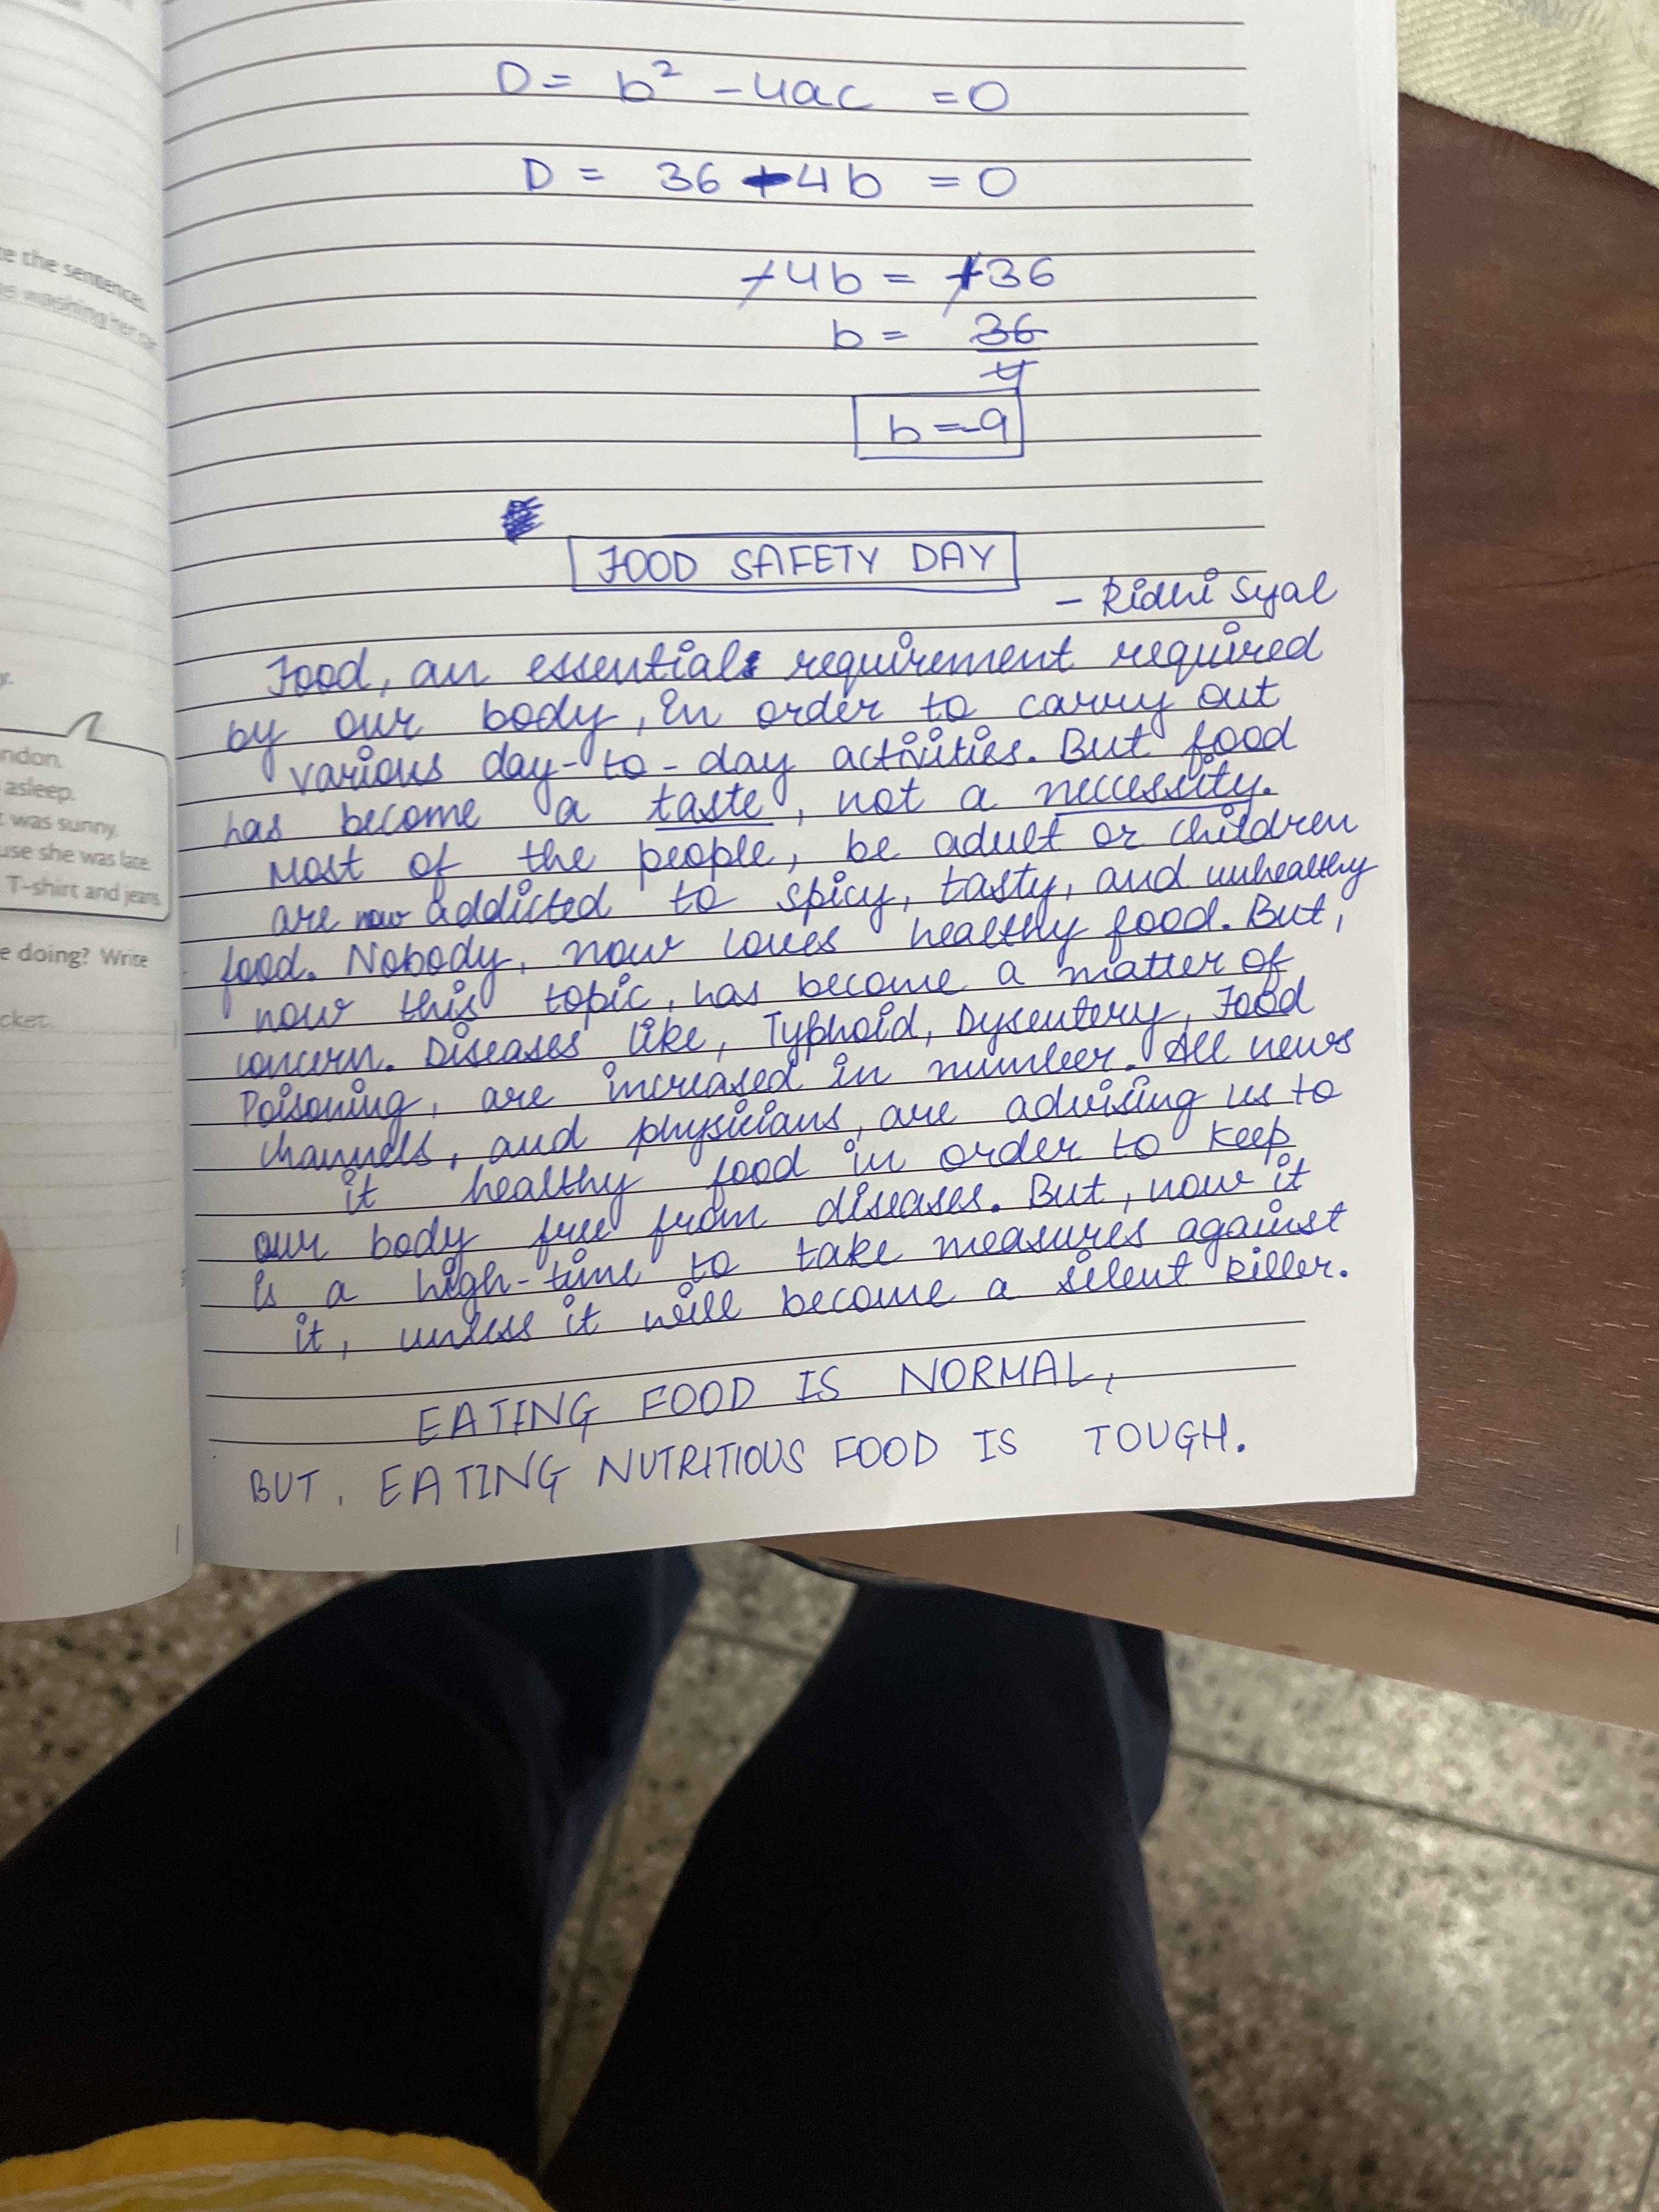 D = b² - 4ac = 0
D = 36 + 4b = 0
-4b = +36
b = 36
4
b = -9
FOOD SAFETY DAY
- Ridhi Syal
Food, an essential requirement required
by our body, in order to carry out
various day-to-day activities. But food
has become a taste, not a neccessity.
Most of the people, be adult or children
are now addicted to spicy, tasty, and unhealthy
food. Nobody, now loves healthy food. But,
now this topic, has become a matter of
concern. Diseases like, Typhoid, Dysentery, Food
Poisoning, are increased in number. All news
channels, and physicians, are advising us to
it healthy food in order to keep
our body free from diseases. But, now it
is a high-time to take measures against
it, unless it will become a silent killer.
EATING FOOD IS NORMAL,
BUT, EATING NUTRITIOUS FOOD IS TOUGH.
te the sentences.
washing her
ndon.
asleep.
was sunny.
use she was late.
T-shirt and jeans
e doing? Write
cket.